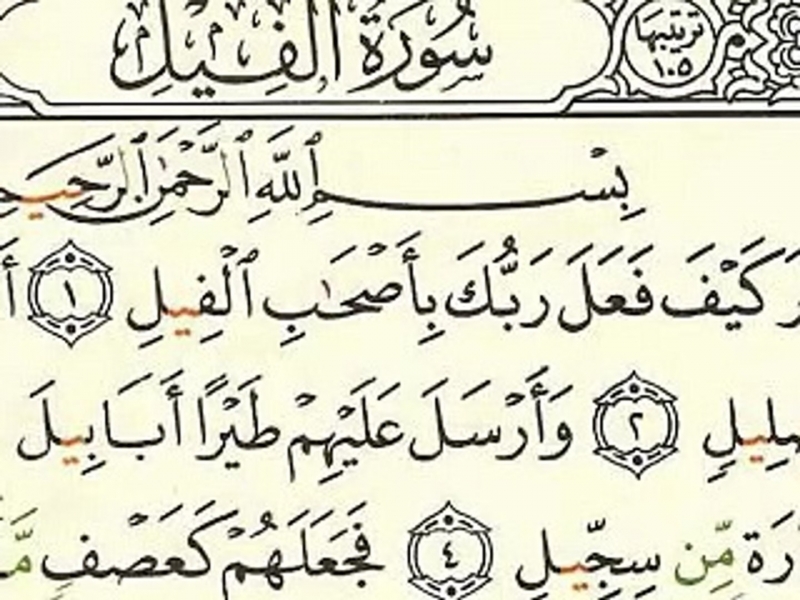 سُورَةُ الْفِيلِ
تَرْتِيبُهَا
١٠٥
بِسْمِ ٱللَّهِ ٱلرَّحْمَٰنِ ٱلرَّحِي
كَيْفَ فَعَلَ رَبُّكَ بِأَصْحَٰبِ ٱلْفِيلِ ١
لِيلٍ ٢ وَأَرْسَلَ عَلَيْهِمْ طَيْرًا أَبَابِيلَ
رَةٍ مِّن سِجِّيلٍ ٤ فَجَعَلَهُمْ كَعَصْفٍ